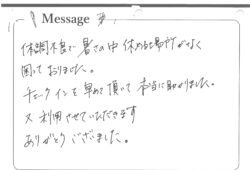 Message
体調不良で暑さの中休める場所がなく
困っておりました。
チェックインを早めて頂いて本当に助かりました。
又利用させていただきます
ありがとうございました。